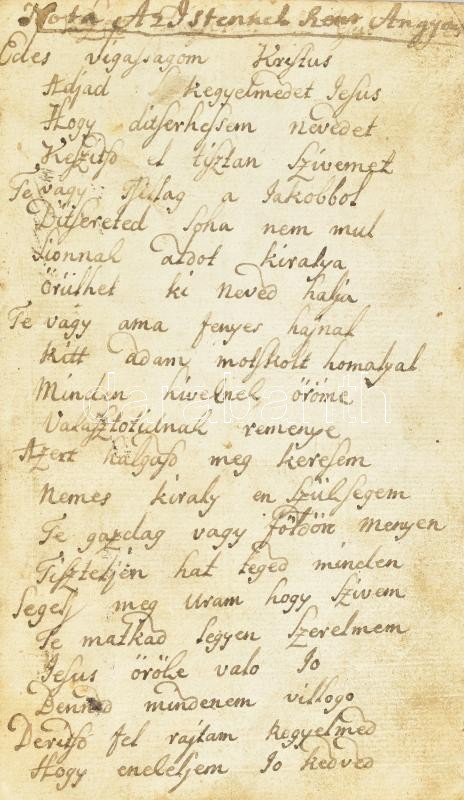 Nota Az Istennek Szent Angya
Edes vigassagom Kristus
Adjad kegyelmedet Jesus
Hogy ditserhessem nevedet
Keszitsd el tisztan szivemet
Te vagy tsillag a Jakobbol
Ditsereted soha nem mul
Sionnak aldot kiralya
Örülhet ki neved halja
Te vagy ama fenyes hajnal
Kitt adam motskolt homalyal
Minden hiveknek öröme
Valasztotidnak remenye
Azert halgasd meg keresem
Nemes kiraly en szüksegem
Te gazdag vagy földön menyen
Tiszteljen hat teged minden
Segelj meg Uram hogy szivem
Te matkad legyen szerelmem
Jesus örökke valo Jo
Denned mindenem villogo
Deritsd fel rajtam kegyelmed
Hogy enekeljem Jo kedved
darabanth